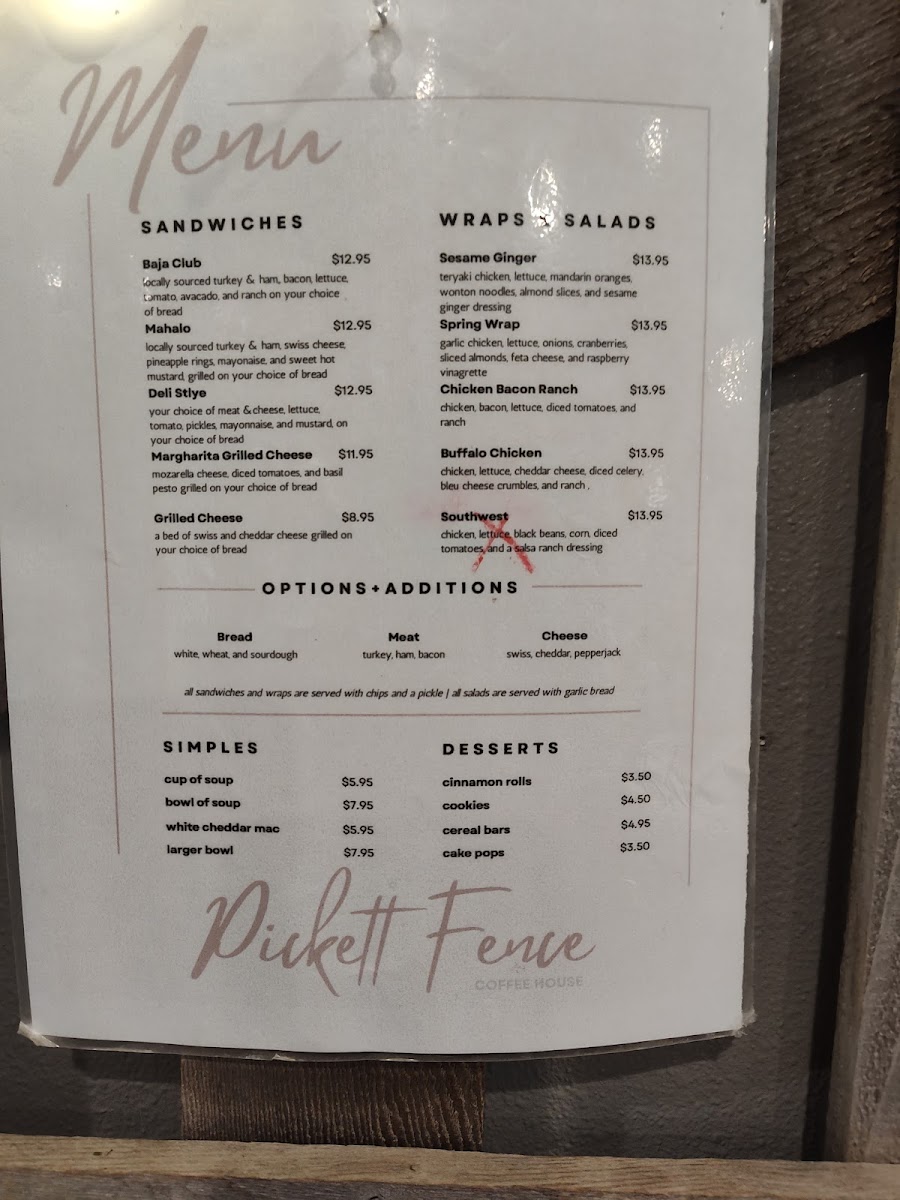 Menu
SANDWICHES
Baja Club $12.95
locally sourced turkey & ham, bacon, lettuce,
tomato, avacado, and ranch on your choice
of bread
Mahalo $12.95
locally sourced turkey & ham, swiss cheese,
pineapple rings, mayonaise, and sweet hot
mustard, grilled on your choice of bread
Deli Stlye $12.95
your choice of meat & cheese, lettuce,
tomato, pickles, mayonnaise, and mustard, on
your choice of bread
Margharita Grilled Cheese $11.95
mozarella cheese, diced tomatoes, and basil
pesto grilled on your choice of bread
Grilled Cheese $8.95
a bed of swiss and cheddar cheese grilled on
your choice of bread
WRAPS & SALADS
Sesame Ginger $13.95
teryaki chicken, lettuce, mandarin oranges,
wonton noodles, almond slices, and sesame
ginger dressing
Spring Wrap $13.95
garlic chicken, lettuce, onions, cranberries,
sliced almonds, feta cheese, and raspberry
vinagrette
Chicken Bacon Ranch $13.95
chicken, bacon, lettuce, diced tomatoes, and
ranch
Buffalo Chicken $13.95
chicken, lettuce, cheddar cheese, diced celery,
bleu cheese crumbles, and ranch .
Southwest $13.95
chicken, lettuce, black beans, corn, diced
tomatoes, and a salsa ranch dressing
OPTIONS+ADDITIONS
Bread
white, wheat, and sourdough
Meat
turkey, ham, bacon
Cheese
swiss, cheddar, pepperjack
all sandwiches and wraps are served with chips and a pickle | all salads are served with garlic bread
SIMPLES
cup of soup $5.95
bowl of soup $7.95
white cheddar mac $5.95
larger bowl $7.95
DESSERTS
cinnamon rolls $3.50
cookies $4.50
cereal bars $4.95
cake pops $3.50
Pickett Fence
COFFEE HOUSE